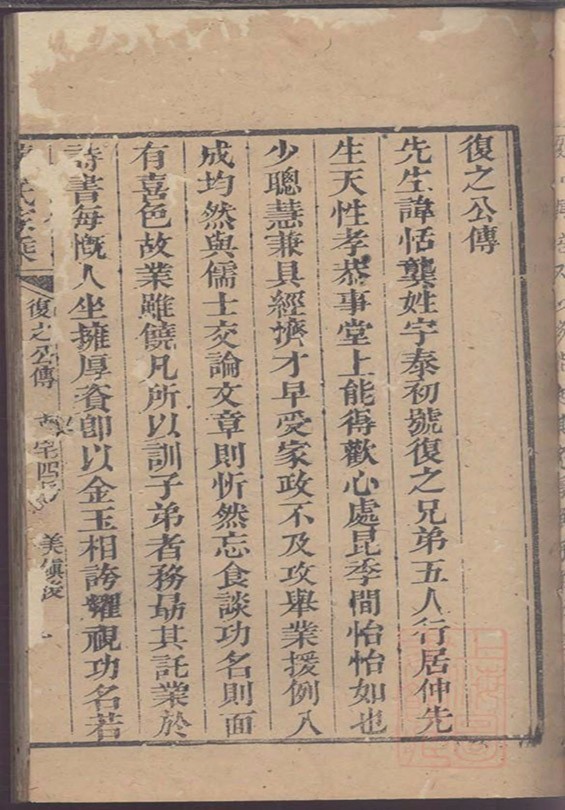 復之公傳
先生諱恬龔姓字泰初號復之兄弟五人行居仲先
生天性孝恭事堂上能得歡心處昆季間怡怡如也
少聰慧兼具經濟才早受家政不及攻舉業援例入
成均然與儒士交論文章則忻然忘食談功名則面
有喜色故業雖饒凡所以訓子弟者務勗其託業於
詩書每慨人坐擁厚資卽以金玉相誇耀視功名若
氏家乘
復之公傳